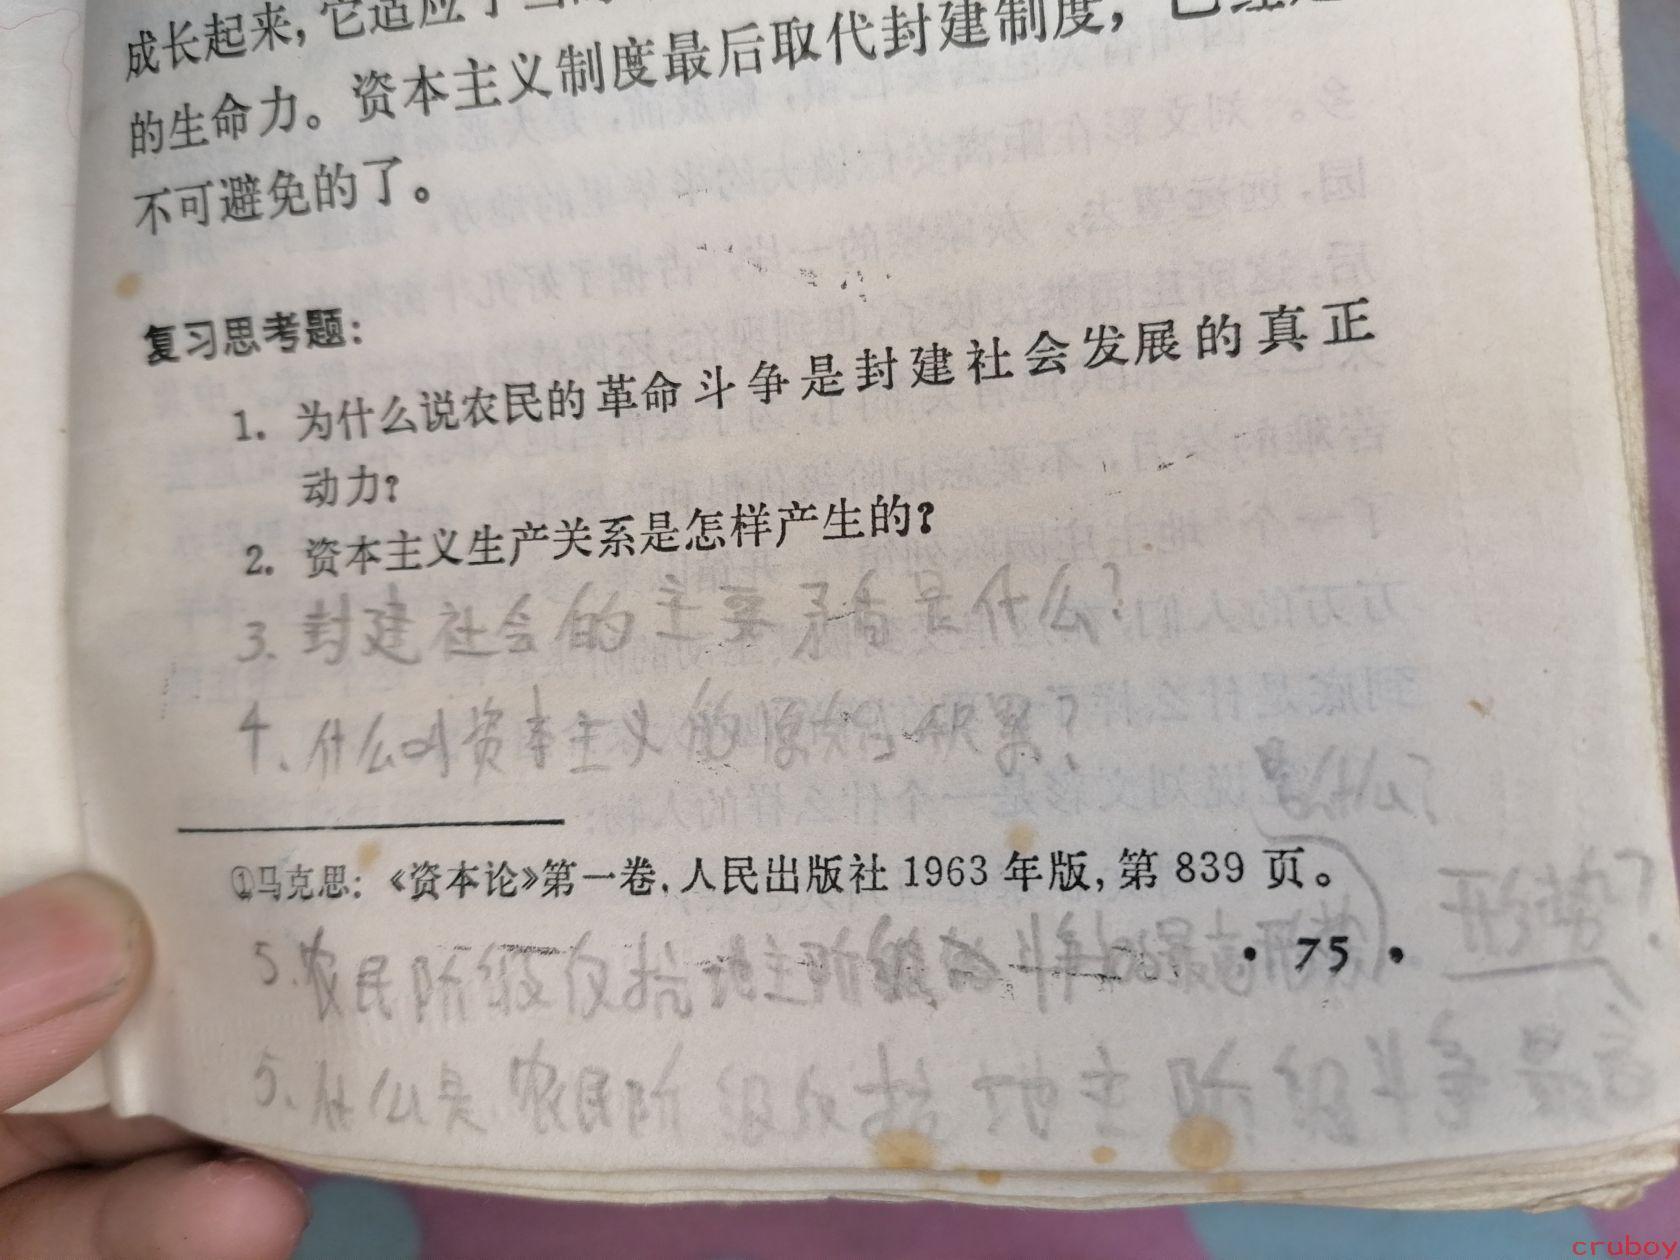 成长起来，它适应了
的生命力。资本主义制度最后取代封建制度，已经是
不可避免的了。
复习思考题：
1. 为什么说农民的革命斗争是封建社会发展的真正
动力？
2. 资本主义生产关系是怎样产生的？
3. 封建社会的主要矛盾是什么？
4. 什么叫资本主义的原始积累？
是什么？
①马克思：《资本论》第一卷，人民出版社1963年版，第839页。
形势？
5. 农民阶级反抗地主阶级的斗争的最高形势
• 75 •
5. 什么是农民阶级反抗地主阶级斗争最高
cruboy